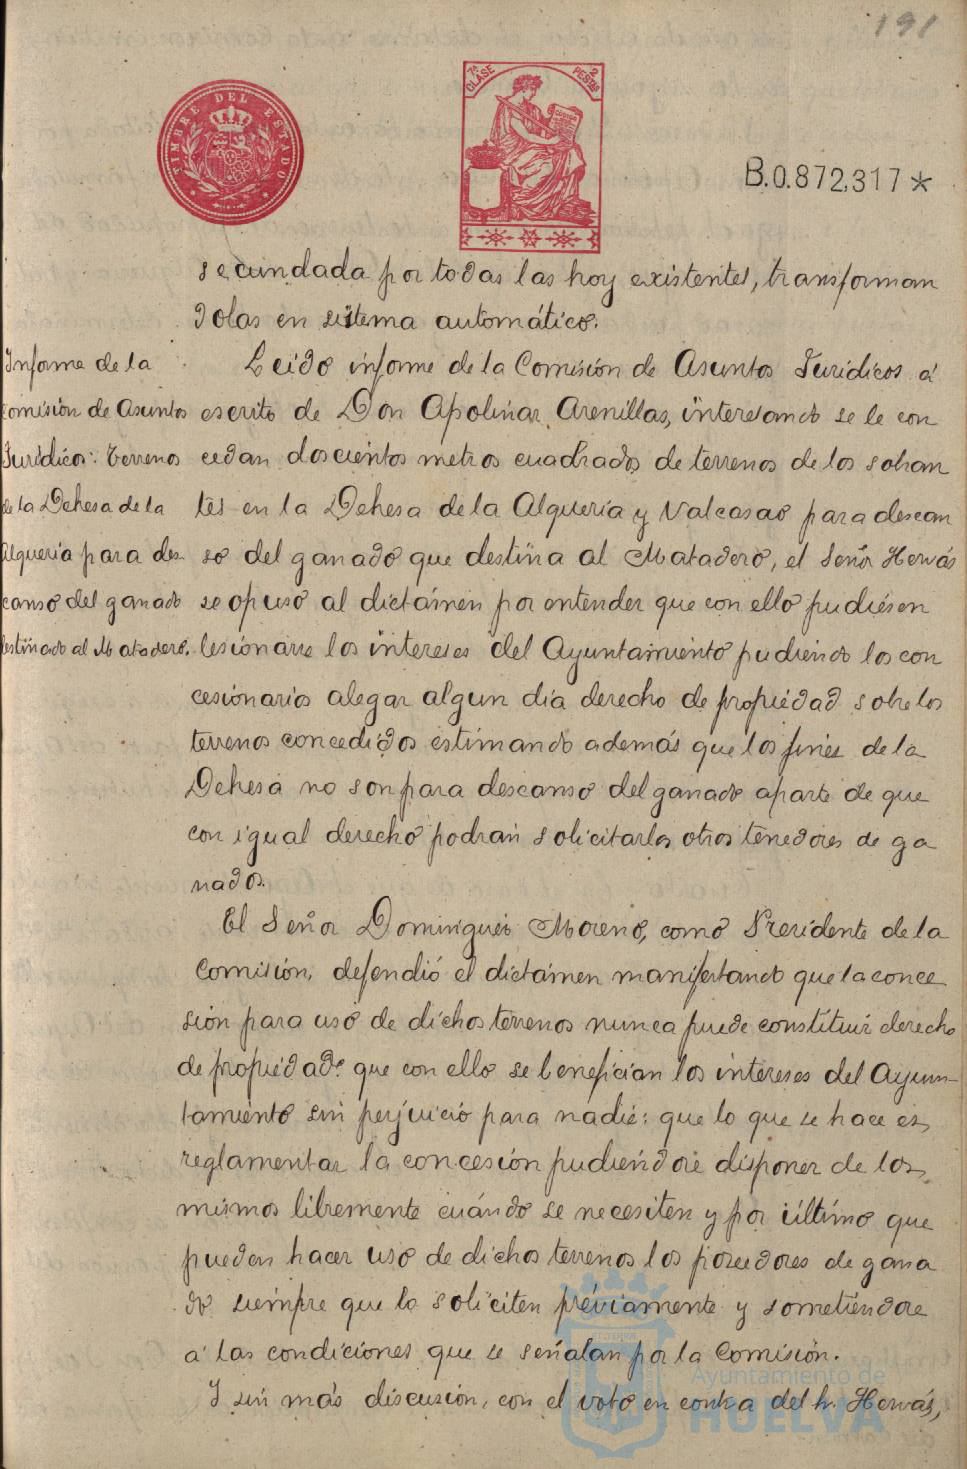 191
TIMBRE DEL ESTADO
7ª CLASE
2 PESTAS
B.0.872,317*
secundada por todas las hoy existentes, transforman
dolas en sistema automático.
Informe de la
comisión de Asuntos
Jurídicos: terrenos
de la Dehesa de la
Alquería para des
canso del ganado
destinado al Matadero.
Leido informe de la Comisión de Asuntos Jurídicos á
escrito de Don Apolinar Arenillas, interesando se le con
cedan doscientos metros cuadrados de terrenos de los sobran
tes en la Dehesa de la Alquería y Valcasao para descan
so del ganado que destina al Matadero, el Señor Hervás
se opuso al dictámen por entender que con ello pudiesen
lesionarse los intereses del Ayuntamiento pudiendo los con
cesionarios alegar algun dia derecho de propiedad sobre los
terrenos concedidos estimando además que los fines de la
Dehesa no son para descanso del ganado aparte de que
con igual derecho podran solicitarlos otros tenedores de ga
nados.
El Señor Dominguez Moreno, como Presidente de la
Comisión, defendió el dictámen manifestando que la conce
sión para uso de dichos terrenos nunca puede constituir derecho
de propiedad: que con ello se benefician los intereses del Ayun-
tamiento sin perjuicio para nadie: que lo que se hace es
reglamentar la concesión pudiendose disponer de los
mismos libremente cuándo se necesiten y por último que
pueden hacer uso de dichos terrenos los poseedores de gana
do siempre que lo soliciten préviamente y sometiendose
á las condiciones que se señalan por la Comisión.
Y sin más discusión, con el voto en contra del Sr. Hervás,
Ayuntamiento de
HUELVA